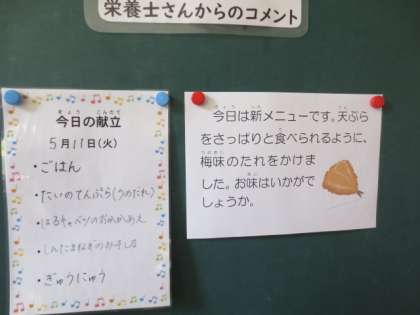 栄養士さんからのコメント
今日の献立
5月11日(火)
・ごはん
・たいのてんぷら(うめだれ)
・はるキャベツのおかかあえ
・しんたまねぎのおみそしる
・ぎゅうにゅう
今日は新メニューです。天ぷら
をさっぱりと食べられるように、
梅味のたれをかけま
した。お味はいかがで
しょうか。